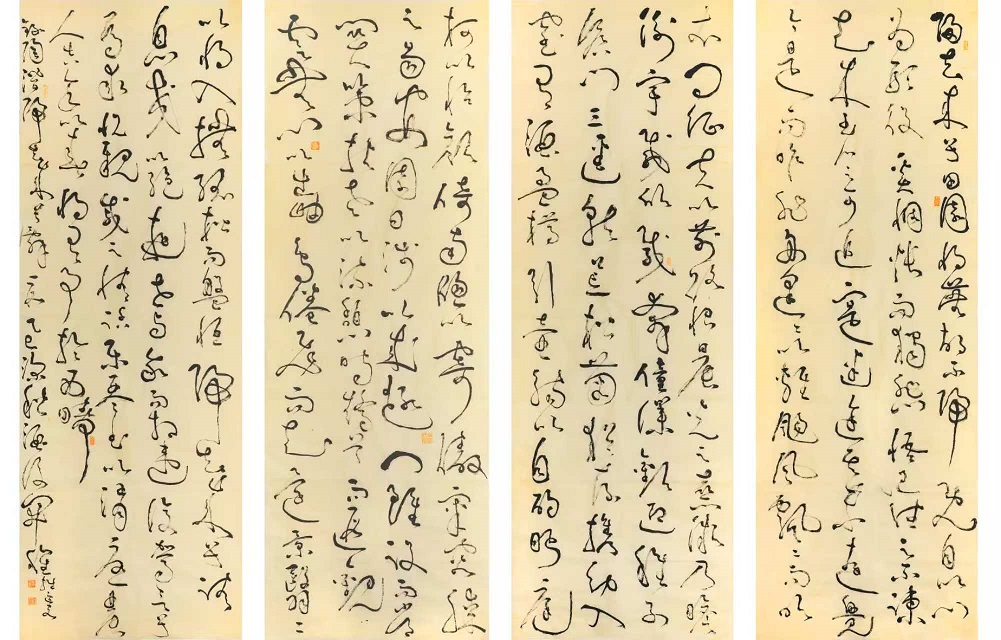 歸去來兮田園將蕪胡不歸既自以心
為形役奚惆悵而獨悲悟已往之不諫
知來者之可追實迷途其未遠覺
今是而昨非舟遙々以輕颺風飄々而吹
衣問征夫以前路恨晨光之熹微乃瞻
衡宇載欣載奔僮僕歡迎稚子
候門三逕就荒松菊猶存攜幼入
室有酒盈樽引壺觴以自酌眄庭
柯以怡顏倚南窗以寄傲審容膝
之易安園日涉以成趣門雖設而常
關策扶老以流憩時矯首而遐觀
雲無心以出岫鳥倦飛而知還景翳々
以將入撫孤松而盤桓歸去來兮請
息交以絕遊世與我而相遺復駕言兮
焉求悅親戚之情話樂琴書以消憂農
人告余以春及將有事於西疇
錄陶潛歸去來兮辭 乙巳深秋酒後